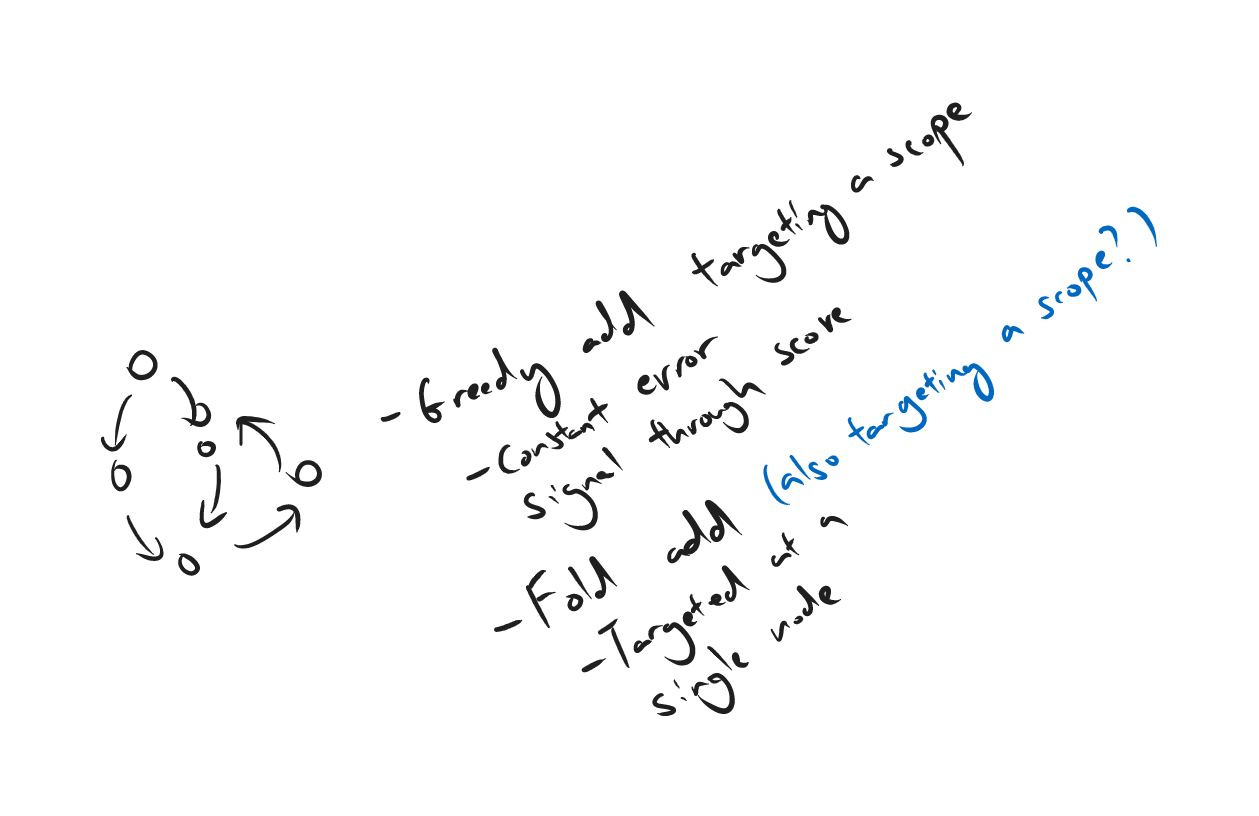 - Greedy add targeting a scope
- Constant error
signal through score
- Fold add (also targeting a scope?)
- Targeted at a
single node